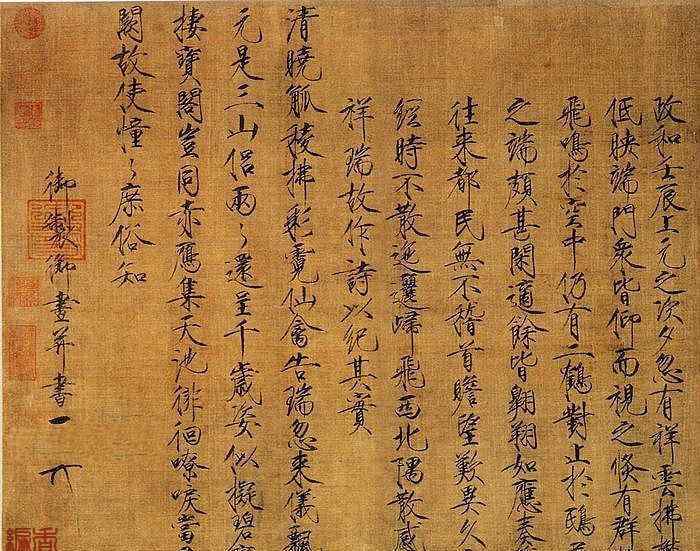 政和壬辰上元之次夕忽有祥雲拂
低映端門衆皆仰而視之倏有群
飛鳴於空中仍有二鶴對止於鴟
之端頗甚閑適餘皆翱翔如應奏
往來都民無不稽首瞻望歎異久
經時不散迤邐歸飛西北隅散感
祥瑞故作詩以紀其實
清曉觚稜拂彩霓仙禽告瑞忽來儀飄
元是三山侶兩〻還呈千歲姿似擬碧
棲寶閣豈同赤鴈集天池徘徊嘹唳當
闕故使憧〻庶俗知
御製御畫并書